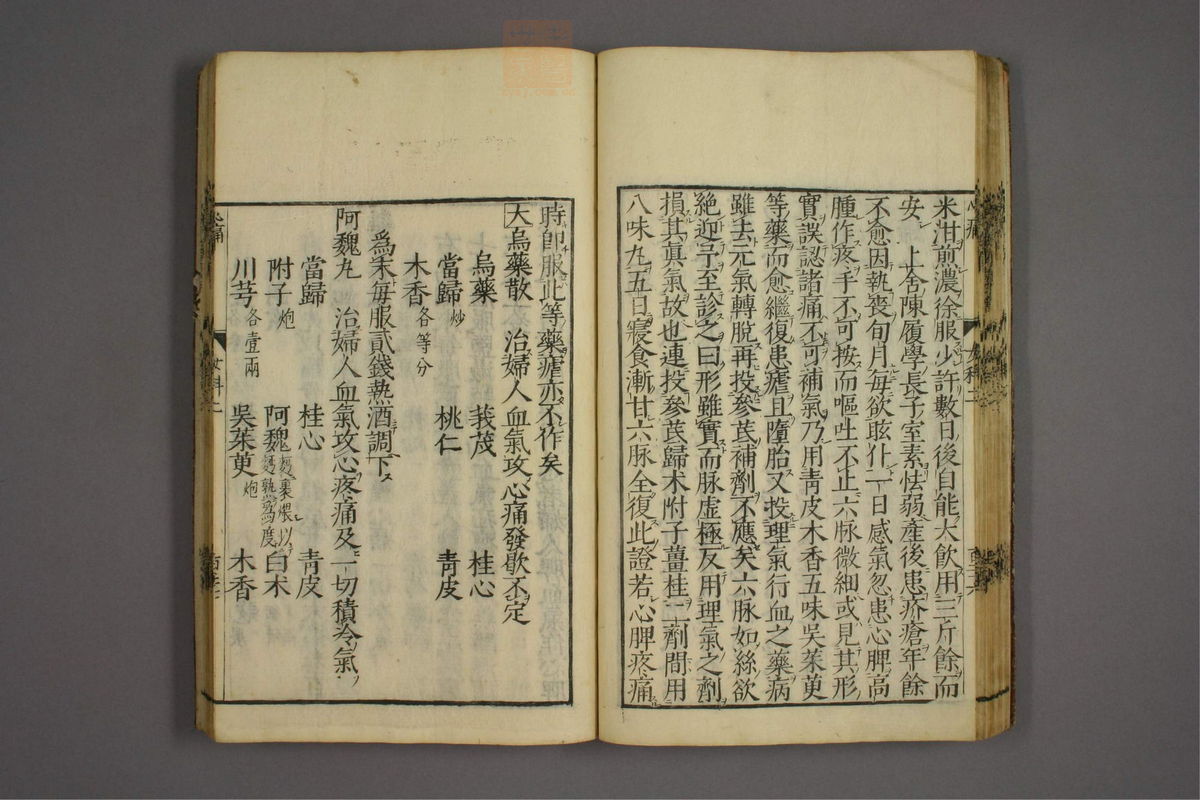 米泔煎濃徐服少許數日後自能大飲用三斤餘而
安 上舍陳履學長子室素怯弱產後患疥瘡年餘
不愈因執喪旬月每欲眩仆一日感氣忽患心脾高
腫作疼手不可按而嘔吐不止六脉微細或見其形
實誤認諸痛不可補氣乃用青皮木香五味吳茱萸
等藥而愈繼復患瘧且墮胎又投理氣行血之藥病
雖去元氣轉脫再投參茋補劑不應矣六脉如絲欲
絶迎予至診之曰形雖實而脉虛極反用理氣之劑
損其眞氣故也連投參茋歸朮附子薑桂二劑間用
八味丸五日寢食漸甘六脉全復此證若心脾疼痛
時卽服此等藥瘧亦不作矣
大烏藥散 治婦人血氣攻心痛發歇不定
烏藥 莪茂 桂心
當歸炒 桃仁 青皮
木香各等分
爲末每服貳錢熱酒調下
阿魏丸 治婦人血氣攻心疼痛及一切積冷氣
當歸 桂心 青皮
附子炮 阿魏麪裹煨以麪熟爲度 白朮
川芎各壹兩 吳茱萸炮 木香
心痛
女科二